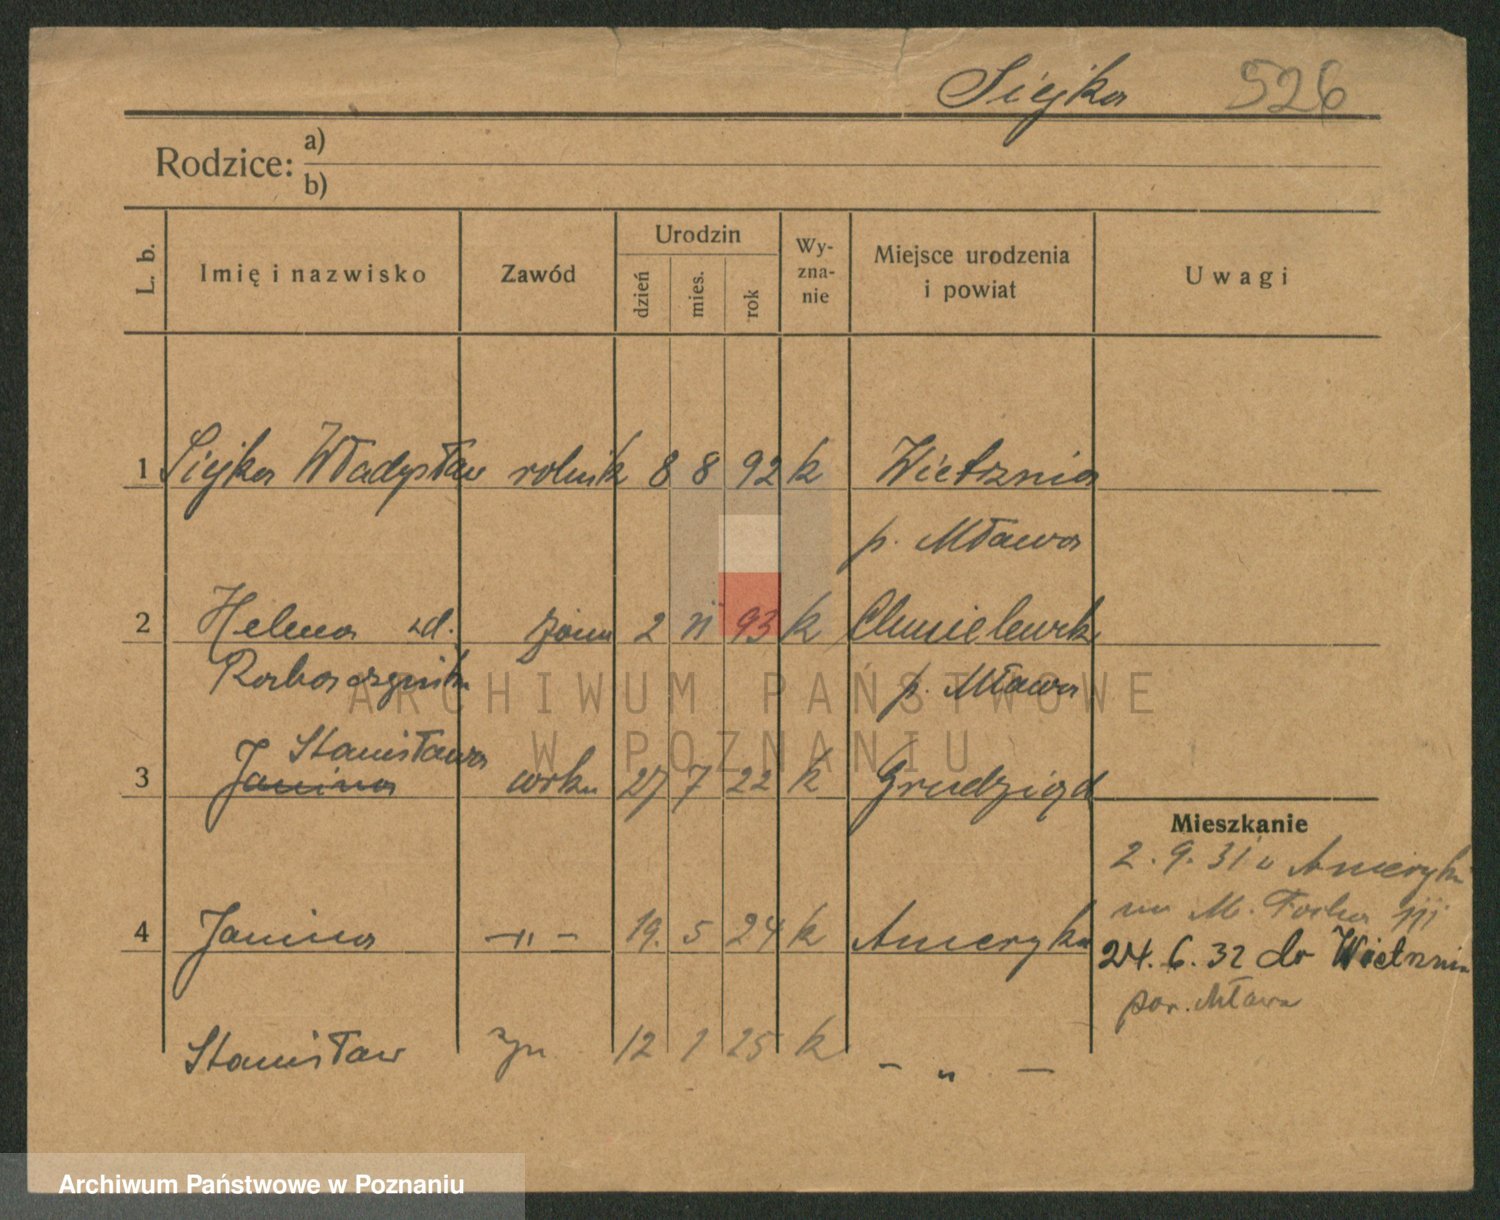 Siejka 526
Rodzice: a)
b)
L. b. Imię i nazwisko Zawód Urodzin dzień mies. rok Wy-zna-nie Miejsce urodzenia i powiat Uwagi
1 Siejka Władysław rolnik 8 8 92 k Wietrznia
p. Mława
2 Helena zd. żona 2 93 k Chmielewk
p. Mława
Stanisława
3 Janina córka 27 7 22 k Grudziąd
Mieszkanie
2. 9. 31 Ameryki
M. Focha
4 Janina -„- 19. 5 24 k Ameryka
24. 6. 32 do Wietrznia
pow. Mława
Stanisław syn 12 1 25 k - „ -
ARCHIWUM PAŃSTWOWE
W POZNANIU
Archiwum Państwowe w Poznaniu